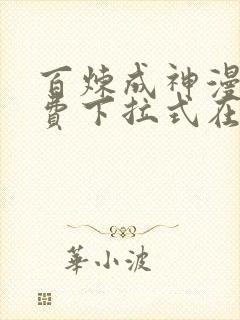 百炼成神漫
费下拉式在
華小波